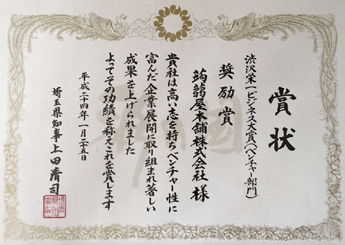 賞状
渋沢栄一ビジネス大賞(ベンチャー部門)
奨励賞
蒟蒻屋本舗株式会社 様
貴社は高い志を持ちベンチャー性に
富んだ企業展開に取り組まれ著しい
成果を上げられました
よってその功績を称えこれを賞します
平成二十四年一月二十五日
埼玉県知事 上田清司